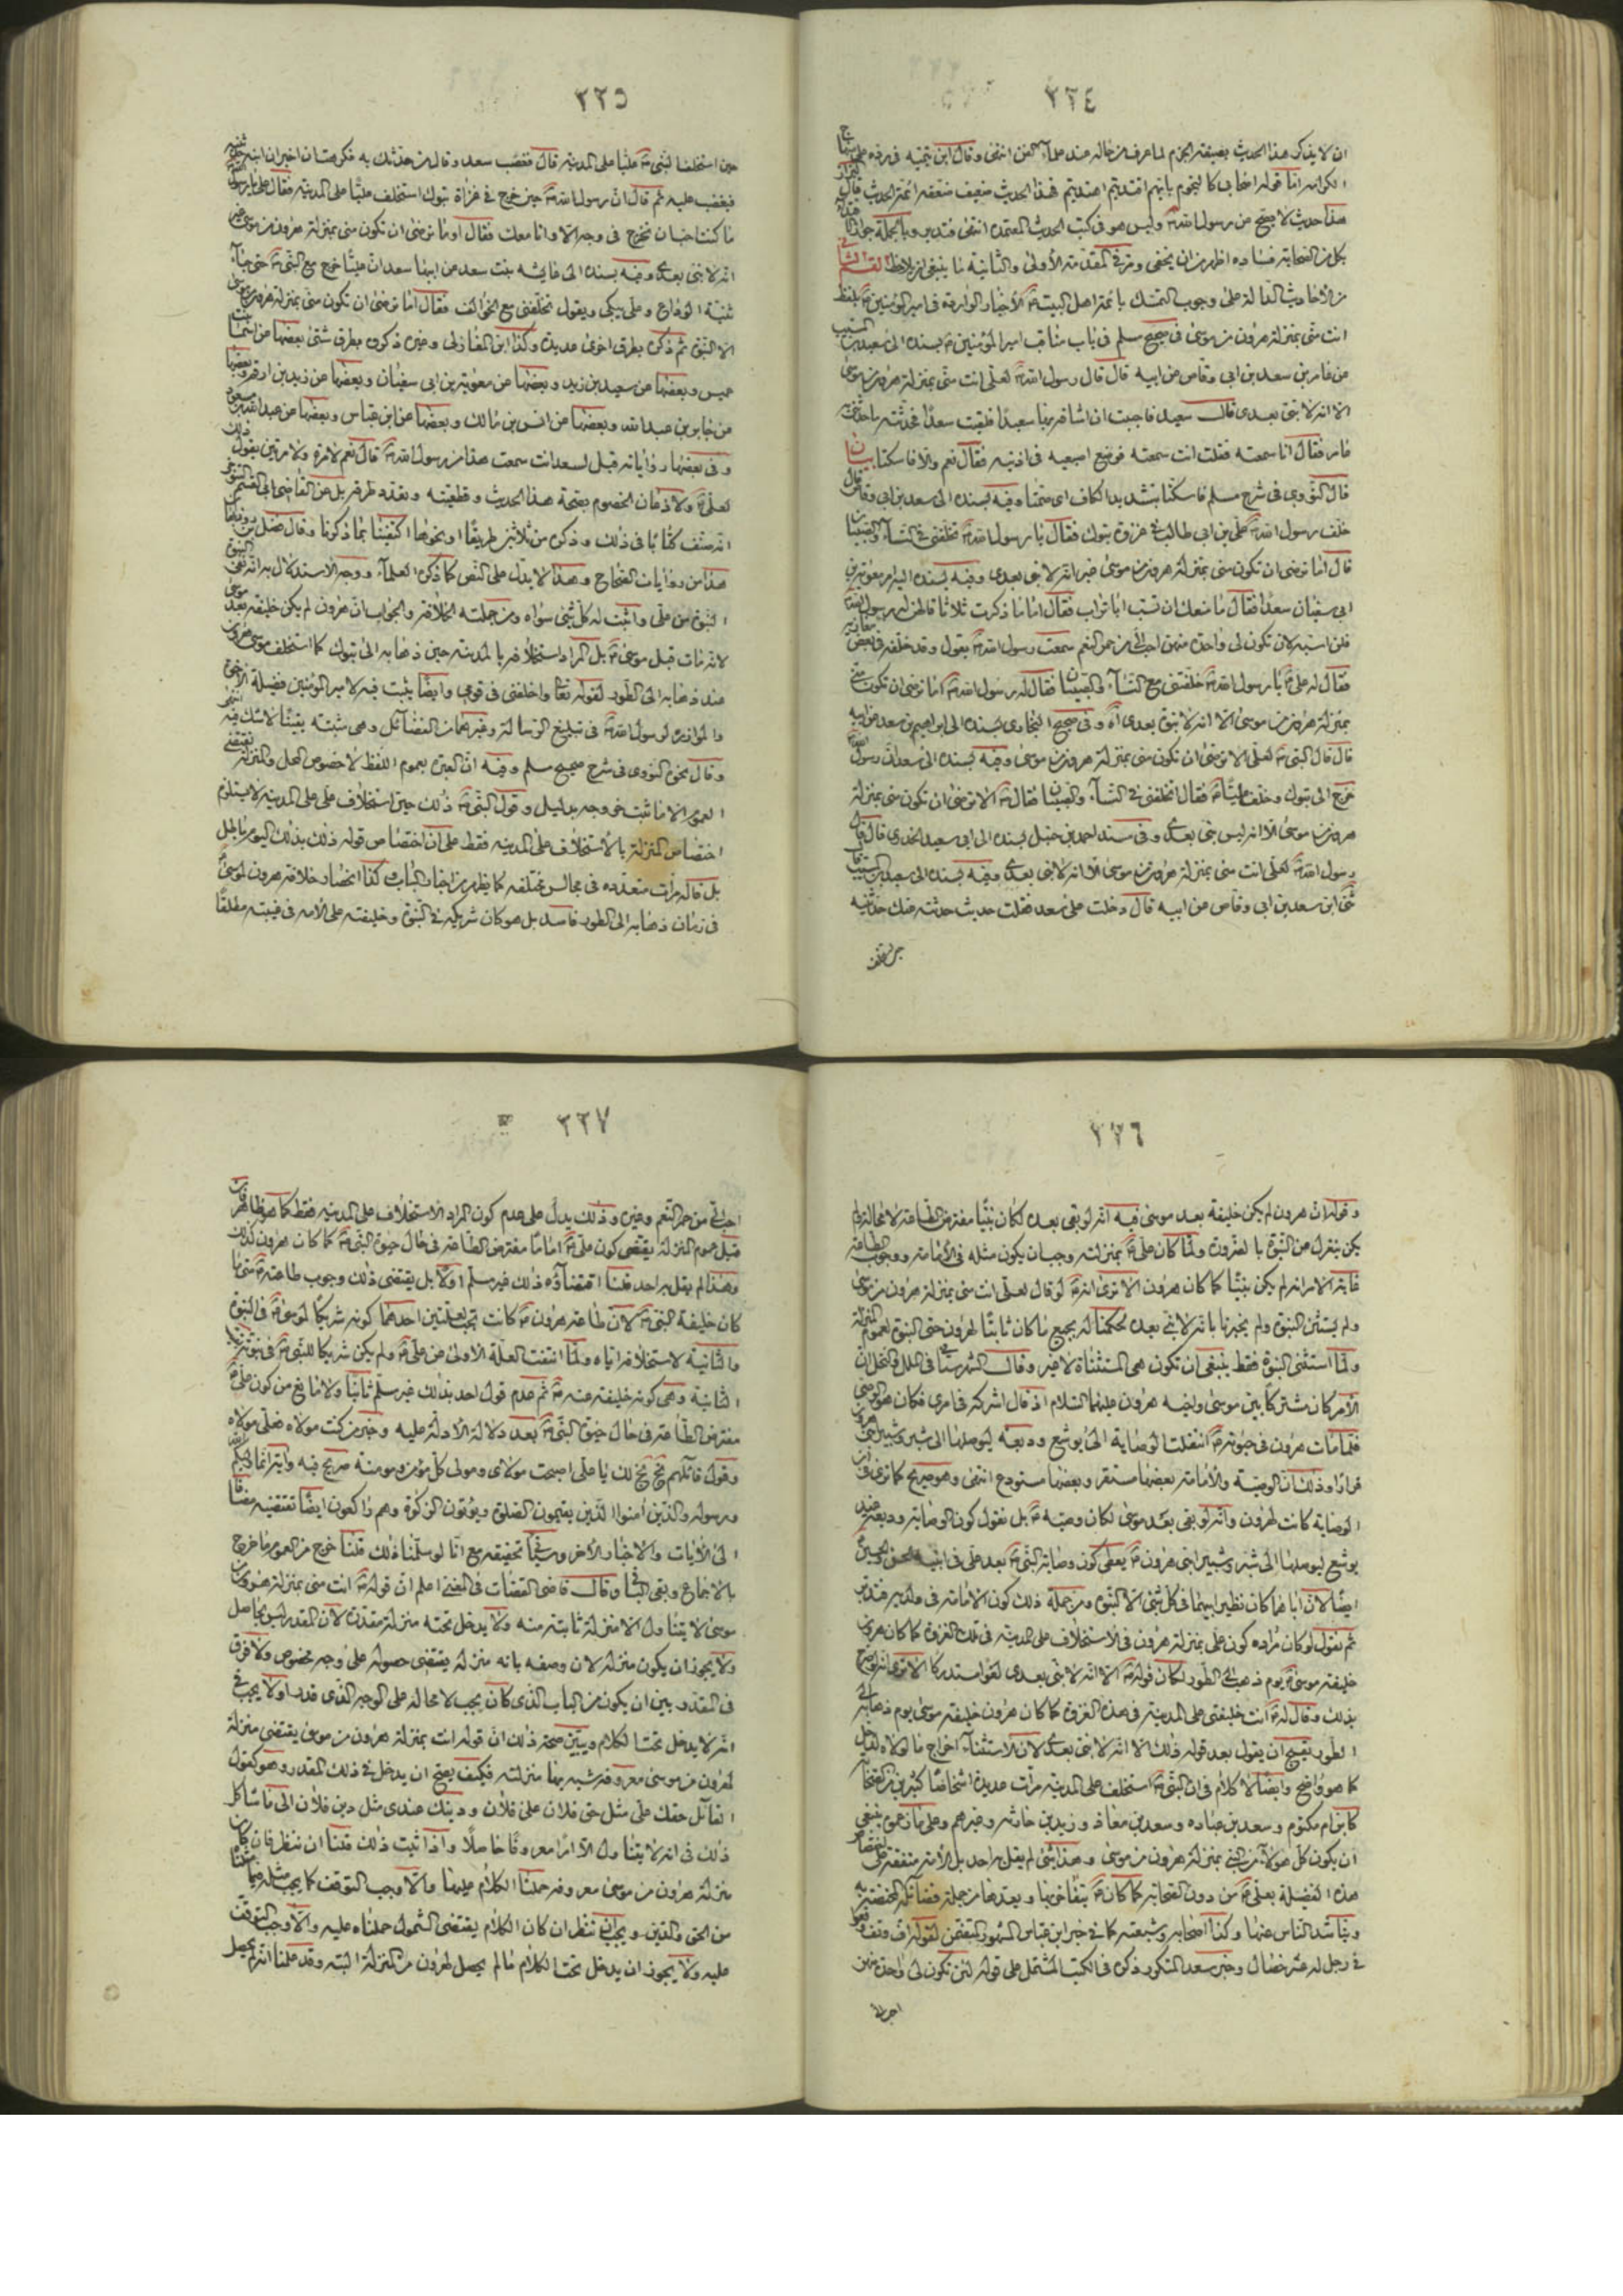 ٣٢٤
ان لا يذكر هذا الحديث بصيغة الجزم لما عرف من حاله عند علماء الفن انتهى وقال ابن تيمية في رده على منهاج
الكرامه اما قوله اصحابي كالنجوم بايهم اقتديتم اهتديتم فهذا الحديث ضعيف ضعفه ائمة الحديث قال البزار
هذا حديث لا يصح عن رسول الله ص وليس هو في كتب الحديث المعتمده انتهى فتدبر وبالجملة جواز
بكل من الصحابة فساده اظهر من ان يخفى ومر في المقدمة الأولى والثانية ما ينبغي ان يلاحظ القسم الثاني
من الأحاديث الدالة على وجوب التمسك بائمة اهل البيت ع الأخبار الوارده في امير المؤمنين ع بلفظ
انت مني بمنزلة هرون من موسى في صحيح مسلم في باب مناقب امير المؤمنين ع بسنده الى سعيد بن المسيب
عن عامر بن سعد بن ابي وقاص عن ابيه قال قال رسول الله ص لعلي انت مني بمنزلة هرون من موسى
الا انه لا نبي بعدي قال سعيد فاحببت ان اشافه بها سعدا فلقيت سعدا فحدثته بما حدثني
عامر فقال انا سمعته فقلت انت سمعته فوضع اصبعيه في اذنيه فقال نعم والا فاسكتا بيان
قال النووي في شرح مسلم فاسكتا بتشديد الكاف اي صمتا وفيه بسنده الى سعد بن ابي وقاص قال
خلف رسول الله ص علي بن ابي طالب في غزوة تبوك فقال يا رسول الله ص تخلفني في النساء والصبيان
قال اما ترضى ان تكون مني بمنزلة هرون من موسى غير انه لا نبي بعدي وفيه بسنده اليه امر معوية بن
ابي سفيان سعدا فقال ما منعك ان تسب ابا تراب فقال اما ما ذكرت ثلاثا قالهن له رسول الله ص
فلن اسبه لان تكون لي واحدة منهن احب الي من حمر النعم سمعت رسول الله ص يقول وقد خلفه في بعض مغازيه
فقال له علي ع يا رسول الله ص خلفتني مع النساء والصبيان فقال له رسول الله ص اما ترضى ان تكون مني
بمنزلة هرون من موسى الا انه لا نبوة بعدي اه وفي صحيح البخاري بسنده الى ابراهيم بن سعد عن ابيه
قال قال النبي ص لعلي الا ترضى ان تكون مني بمنزلة هرون من موسى وفيه بسنده الى سعد ان رسول الله ص
خرج الى تبوك وخلف عليا ع فقال اتخلفني في النساء والصبيان فقال ص الا ترضى ان تكون مني بمنزلة
هرون من موسى الا انه ليس نبي بعدي وفي مسند احمد بن حنبل بسنده الى ابي سعيد الخدري قال قال
رسول الله ص لعلي انت مني بمنزلة هرون من موسى الا انه لا نبي بعدي وفيه بسنده الى سعيد بن المسيب قال
ابن سعد بن ابي وقاص عن ابيه قال دخلت على سعد فقلت حديث حدثته عنك حدثنيه
٣٢٥
حين استخلف النبي ص عليا على المدينة قال فغضب سعد وقال من حدثك به فكرهت ان اخبره ان ابنه حدثنيه
فيغضب عليه ثم قال ان رسول الله ص حين خرج في غزاة تبوك استخلف عليا على المدينة فقال علي يا رسول الله
ما كنت احب ان تخرج في وجه الا وانا معك فقال اوما ترضى ان تكون مني بمنزلة هرون من موسى غير
انه لا نبي بعدي وفيه بسنده الى عايشه بنت سعد عن ابيها سعد ان عليا خرج مع النبي ص حتى جاء
ثنية الوداع وعلي يبكي ويقول تخلفني مع الخوالف فقال اما ترضى ان تكون مني بمنزلة هرون من موسى
الا النبوة ثم ذكره بطرق اخرى عديدة وكذا ابن المغازلي وغيره ذكروه بطرق شتى بعضها عن اسماء بنت
عميس وبعضها عن سعيد بن زيد وبعضها عن معوية بن ابي سفيان وبعضها عن زيد بن ارقم وبعضها
عن جابر بن عبد الله وبعضها عن انس بن مالك وبعضها عن ابن عباس وبعضها عن عبد الله بن مسعود
وفي بعضها رواياته قيل لسعد انت سمعت هذا من رسول الله ص قال نعم لا مرة ولا مرتين يقول ذلك
لعلي ع ولاذعان الخصوم بصحة هذا الحديث وقطعيته وتعدد طرقه بل عن القاضي ابي القسم التنوخي
انه صنف كتابا في ذلك وذكره من ثلاثين طريقا او نحوها اكتفينا بما ذكرنا وقال فضل بن روزبهان
هذا من روايات الصحاح وهذا لا يدل على النص كما ذكره العلماء ووجه الاستدلال به انه نفى النبي
النبوة من علي واثبت له كل شئ سواه ومن جملته الخلافة والجواب ان هرون لم يكن خليفة بعد موسى
لانه مات قبل موسى ع بل المراد استخلافه بالمدينة حين ذهابه الى تبوك كما استخلف موسى هرون
عند ذهابه الى الطور لقوله تعالى واخلفني في قومي وايضا يثبت فيه لامير المؤمنين فضيلة الاخوة
والموازرة لرسول الله ص في تبليغ الرسالة وغيرهما من الفضائل وهي مثبته يقينا لا شك فيه انتهى
وقال نحوه النووي في شرح صحيح مسلم وفيه ان العبرة بعموم اللفظ لا خصوص المحل والمنزلة تقتضي
العموم الا ما ثبت خروجه بدليل وقول النبي ص ذلك حين استخلاف علي على المدينة لا يستلزم
اختصاص المنزلة بالأستخلاف على المدينه فقط على ان اختصاص قوله ذلك بذلك اليوم باطل
بل قاله مرات متعدده في مجالس مختلفه كما يظهر من اخبار الباب وكذا انحصار خلافة هرون لموسى
في زمان ذهابه الى الطور فاسد بل هو كان شريكه في النبوة وخليفته على الأمة في غيبته مطلقا
٣٢٦
وقوله ان هرون لم يكن خليفة بعد موسى فيه انه لو بقي بعده لكان نبيا مفترض الطاعة لا محالة ولم
يكن ينعزل عن النبوة بالضرورة ولما كان علي ع بمنزلته وجب ان يكون مثله في الأمامة ووجوب الطاعة
غاية الامر انه لم يكن نبيا كما كان هرون الا ترى انه ص لو قال لعلي انت مني بمنزلة هرون من موسى
ولم يستثن النبوة ولم يخبرنا بانه لا نبي بعده لحكمنا له بجميع ما كان ثابتا لهرون حتى النبوة لعموم المنزلة
ولما استثنى النبوة فقط ينبغي ان تكون هي المستثناة لا غير وقال الشهرستاني في الملل والنحل ان
الأمر كان مشتركا بين موسى واخيه هرون عليهما السلام اذ قال اشركه في امري فكان هو الوصي
فلما مات هرون في حيوته ع انتقلت الوصاية الى يوشع وديعة ليوصلها الى شبر وشبير ابني هرون
قرارا وذلك ان الوصية والأمامة بعضها مستقر وبعضها مستودع انتهى وهو صريح كما ترى في ان
الوصاية كانت لهرون وانه لو بقي بعد موسى لكان وصيه ع بل نقول كون الوصاية وديعة عند
يوشع ليوصلها الى شبر وشبير ابني هرون ع يعطي كون وصاية النبي ص بعد علي في ابنيه الحسن والحسين
ايضا لان اباهما كان نظير ابيهما في كل شئ الا النبوة ومن جملة ذلك كون الأمامة في ولديه فتدبر
ثم نقول لو كان مراده كون علي بمنزلة هرون في الاستخلاف على المدينة في تلك الغزوة كما كان هرون
خليفة موسى ع يوم ذهب الى الطور لكان قوله ص الا انه لا نبي بعدي لغوا مستدركا الا ترى انه لو صرح
بذلك وقال له ص انت خليفتي على المدينة في هذه الغزوة كما كان هرون خليفة موسى يوم ذهابه الى
الطور يقبح ان يقول بعد قوله ذلك الا انه لا نبي بعدي لان الاستثناء اخراج ما لولاه لدخل
كما هو واضح وايضا لا كلام في ان النبي ص استخلف على المدينة مرات عديدة اشخاصا كثيرين من الصحابة
كابن ام مكتوم وسعد بن عباده وسعد بن معاذ وزيد بن حارثه وغيرهم وعلى ما زعموه ينبغي
ان يكون كل هؤلاء من النبي بمنزلة هرون من موسى وهذا شئ لم يقل به احد بل الأمة متفقة على اختصاص
هذه الفضيلة بعلي ع من دون الصحابة كما كان ع يتفاخر بها ويعدها من جملة فضائله المختصة به
ويناشد الناس عنها وكذا اصحابه وشيعته كما في خبر ابن عباس المشهور المتضمن لقوله اف وتف وقعوا
في رجل له عشر خصال وخبر سعد المتكرر ذكره في الكتب المشتمل على قوله لئن تكون لي واحدة منهن
٣٢٧
احب الي من حمر النعم وغيره وذلك يدل على عدم كون المراد الاستخلاف على المدينة فقط كما هو ظاهر فان
قيل عموم المنزلة يقتضي كون علي ع اماما مفترض الطاعة في حال حيوة النبي ص كما كان هرون كذلك
وهذا لم يقل به احد قلنا اقتضاؤه ذلك غير مسلم اولا بل يقتضي ذلك وجوب طاعته ع متى ما
كان خليفة النبي ص لان طاعة هرون ع كانت تجب لعلتين احدهما كونه شريكا لموسى ع في النبوة
والثانية لاستخلافه اياه ولما انتفت العلة الاولى عن علي ع ولم يكن شريكا للنبي ص في نبوته
الثانية وهي كونه خليفة عنه ص ثم عدم قول احد بذلك غير مسلم ثانيا ولا مانع من كون علي ع
مفترض الطاعة في حال حيوة النبي ص بعد دلالة الأدلة عليه وخبر من كنت مولاه فعلي مولاه
وقول قائلهم بخ بخ لك يا علي اصبحت مولاي ومولى كل مؤمن ومؤمنة صريح فيه واية انما وليكم الله
ورسوله والذين امنوا الذين يقيمون الصلوة ويؤتون الزكوة وهم راكعون ايضا تقتضيه مضافا
الى الأيات والاخبار الأخر وسيجئ تحقيقه مع انا لو سلمنا ذلك قلنا خرج من العموم ما خرج
بالاجماع وبقي الباقي وقال قاضي القضات في المغني اعلم ان قوله ص انت مني بمنزلة هرون من
موسى لا يتناول الا منزلة ثابتة منه ولا يدخل تحته منزلة مقدرة لان المقدر ليس بحاصل
ولا يجوز ان يكون منزلة لان وصفه بانه منزلة يقتضي حصوله على وجه مخصوص ولا فرق
في المقدر بين ان يكون من الباب الذي كان يجب لا محالة على الوجه الذي قدر او لا يجب في
انه لا يدخل تحت الكلام ويبين صحة ذلك ان قوله انت بمنزلة هرون من موسى يقتضي منزلة
لهرون من موسى معروفة شبه بها منزلته فكيف يصح ان يدخل في ذلك المقدر وهو كقول
القائل حقك علي مثل حق فلان على فلان ودينك عندي مثل دين فلان الى ما شاكل
ذلك في انه لا يتناول الا امرا معروفا حاصلا واذا ثبت ذلك قلنا ان ننظر فان كانت
منزلة هرون من موسى معروفة حملنا الكلام عليها والا وجب التوقف كما يجب مثله فيما مثلناه
من الحق والدين ويجب ان ننظر ان كان الكلام يقتضي الشمول حملناه عليه والا وجب التوقف
عليه ولا يجوز ان يدخل تحت الكلام مالم يحصل لهرون من المنزلة البتة وقد علمنا انه لم يحصل